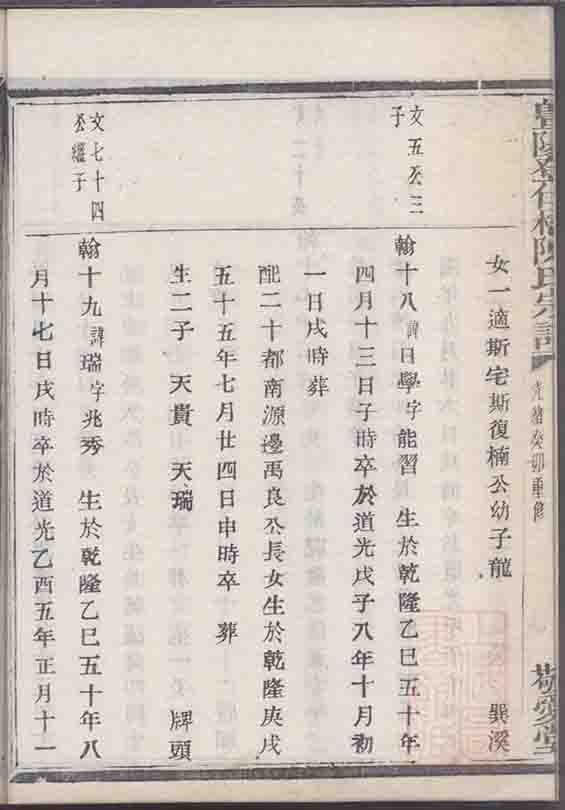 陳氏宗譜
光緒癸卯重修
敬愛堂
女一適斯宅斯復楠公幼子龍 巽溪
文五公三
子
翰十八諱日學字能習 生於乾隆乙巳五十年
四月十三日子時卒於道光戊子八年十月初
一日戌時葬
配二十都南源邊禹良公長女生於乾隆庚戌
五十五年七月廿四日申時卒 葬
生二子 天貴 天瑞 牌頭
文七十四
公繼子
翰十九諱瑞字兆秀 生於乾隆乙巳五十年八
月十七日戌時卒於道光乙酉五年正月十一